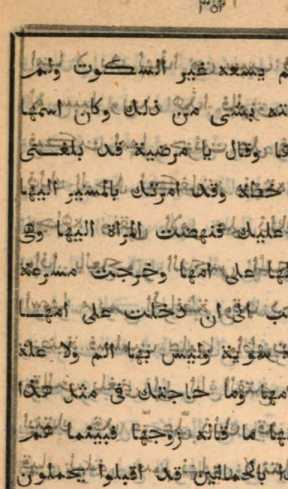 ٣٥٣
لم يسعه غير السكوت ولم
بشى من ذلك وكان اسمها
وقال يا مرضية قد بلغنى
خطاة وقد امرتك بالمسير اليها
عليك فنهضت المراة اليها وهى
على امها وخرجت مسرعة
الى ان دخلت على امها
سوية وليس بها الم ولا علة
امها وما حاجتك فى مثل هذا
ما قاله زوجها فبينما هم
بالحمالين قد اقبلوا يحملون